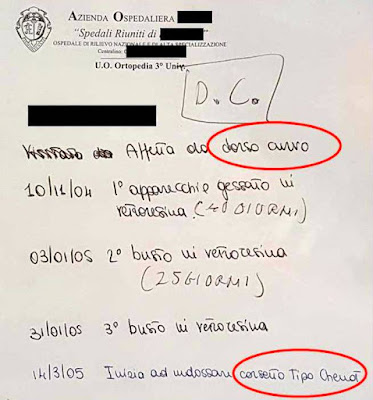 AZIENDA OSPEDALIERA
"Spedali Riuniti di
OSPEDALE DI RILIEVO NAZIONALE E DI ALTA SPECIALIZZAZIONE
Centralino:
U.O. Ortopedia 3° Univ.
D.C.
Affetta da dorso curvo
10/11/04 1° apparecchio gessato in
vetroresina (40 GIORNI)
03/01/05 2° busto in vetroresina
(25 GIORNI)
31/01/05 3° busto in vetroresina
14/3/05 Inizia ad indossare corsetto Tipo Chenot